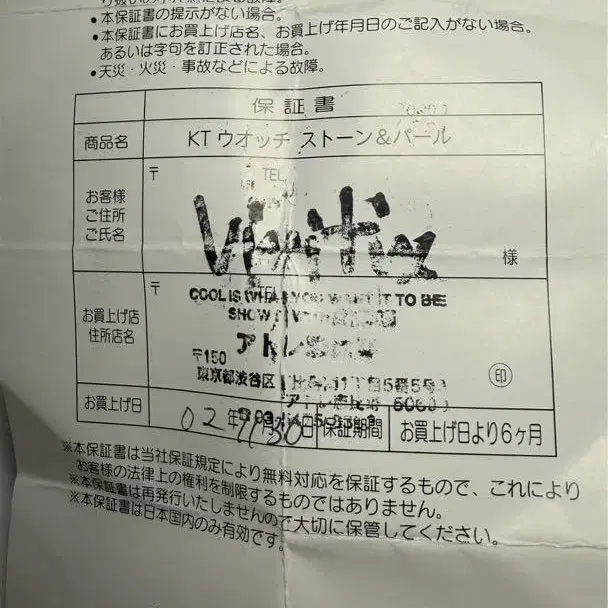 •本保証書の提示がない場合。
•本保証書にお買上げ店名、お買上げ年月日のご記入がない場合。
あるいは字句を訂正された場合。
•天災・火災・事故などによる故障。
保証書
商品名 KTウオッチ ストーン＆パール
お客様
ご住所
ご氏名
〒 TEL.
様
お買上げ店
住所店名
〒
COOL IS WHAT YOU WANT IT TO BE
SHOW
アトレ
〒150
東京都渋谷区
5番5号
印
お買上げ日 02年11月30日 保証期間 お買上げ日より6ヶ月
※本保証書は当社保証規定により無料対応を保証するもので、これにより
お客様の法律上の権利を制限するものではありません。
※本保証書は再発行いたしませんので大切に保管してください。
※本保証書は日本国内のみ有効です。